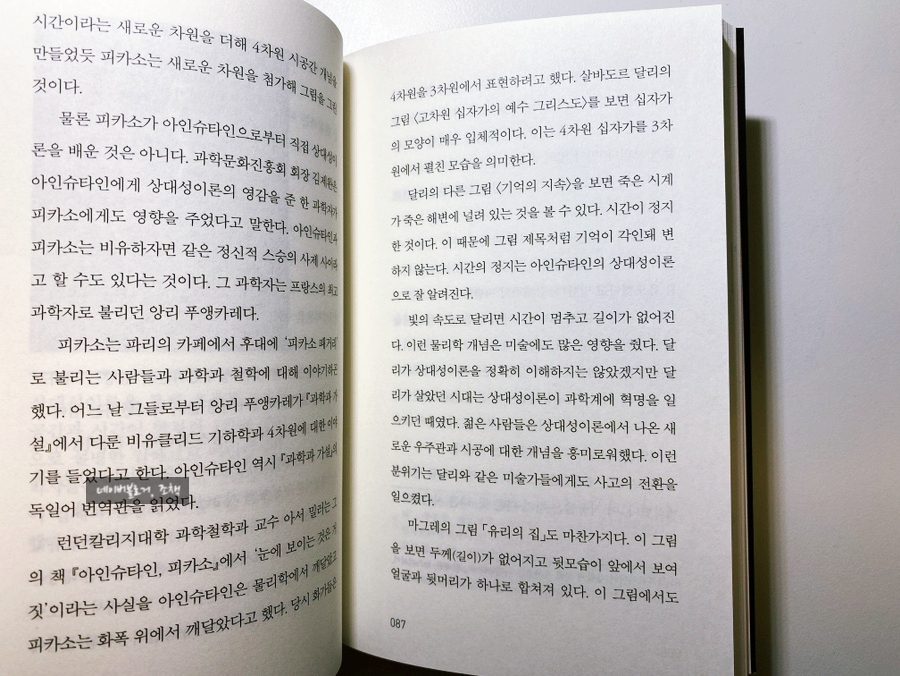 시간이라는 새로운 차원을 더해 4차원 시공간 개념을
만들었듯 피카소는 새로운 차원을 첨가해 그림을 그린
것이다.
물론 피카소가 아인슈타인으로부터 직접 상대성이
론을 배운 것은 아니다. 과학문화진흥회 회장 김제완은
아인슈타인에게 상대성이론의 영감을 준 한 과학자가
피카소에게도 영향을 주었다고 말한다. 아인슈타인과
피카소는 비유하자면 같은 정신적 스승의 사제 사이라
고 할 수도 있다는 것이다. 그 과학자는 프랑스의 최고
과학자로 불리던 앙리 푸앵카레다.
피카소는 파리의 카페에서 후대에 ‘피카소 패거리’
로 불리는 사람들과 과학과 철학에 대해 이야기하곤
했다. 어느 날 그들로부터 앙리 푸앵카레가 『과학과 가
설』에서 다룬 비유클리드 기하학과 4차원에 대한 이야
기를 들었다고 한다. 아인슈타인 역시 『과학과 가설』의
네이버블로거, 조책
독일어 번역판을 읽었다.
런던칼리지대학 과학철학과 교수 아서 밀러는 그
의 책 『아인슈타인, 피카소』에서 ‘눈에 보이는 것은 거
짓’이라는 사실을 아인슈타인은 물리학에서 깨달았고
피카소는 화폭 위에서 깨달았다고 했다. 당시 화가들은
4차원을 3차원에서 표현하려고 했다. 살바도르 달리의
그림 〈고차원 십자가의 예수 그리스도〉를 보면 십자가
의 모양이 매우 입체적이다. 이는 4차원 십자가를 3차
원에서 펼친 모습을 의미한다.
달리의 다른 그림 〈기억의 지속〉을 보면 죽은 시계
가 죽은 해변에 널려 있는 것을 볼 수 있다. 시간이 정지
한 것이다. 이 때문에 그림 제목처럼 기억이 각인돼 변
하지 않는다. 시간의 정지는 아인슈타인의 상대성이론
으로 잘 알려진다.
빛의 속도로 달리면 시간이 멈추고 길이가 없어진
다. 이런 물리학 개념은 미술에도 많은 영향을 줬다. 달
리가 상대성이론을 정확히 이해하지는 않았겠지만 달
리가 살았던 시대는 상대성이론이 과학계에 혁명을 일
으키던 때였다. 젊은 사람들은 상대성이론에서 나온 새
로운 우주관과 시공에 대한 개념을 흥미로워했다. 이런
분위기는 달리와 같은 미술가들에게도 사고의 전환을
일으켰다.
마그레의 그림 「유리의 집」도 마찬가지다. 이 그림
을 보면 두께(길이)가 없어지고 뒷모습이 앞에서 보여
얼굴과 뒷머리가 하나로 합쳐져 있다. 이 그림에서도
087